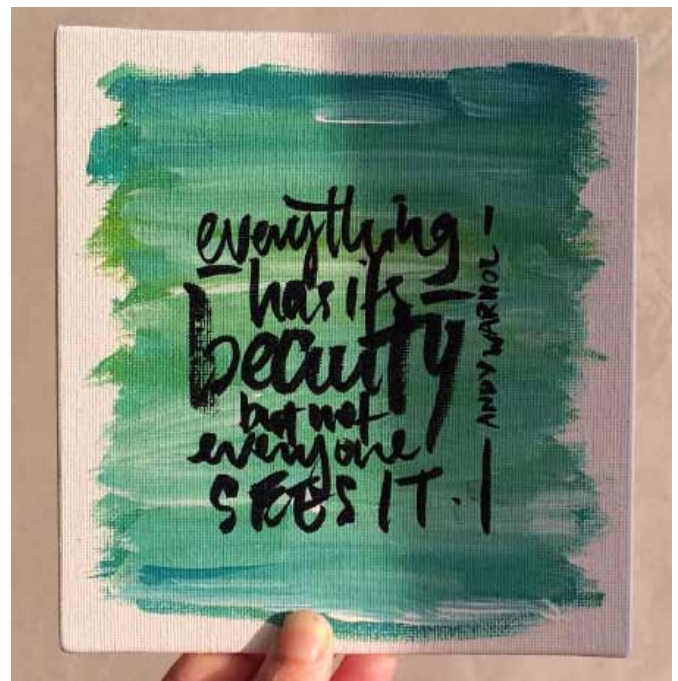 everything
has its
beauty
but not
everyone
SEES IT.
ANDY WARHOL